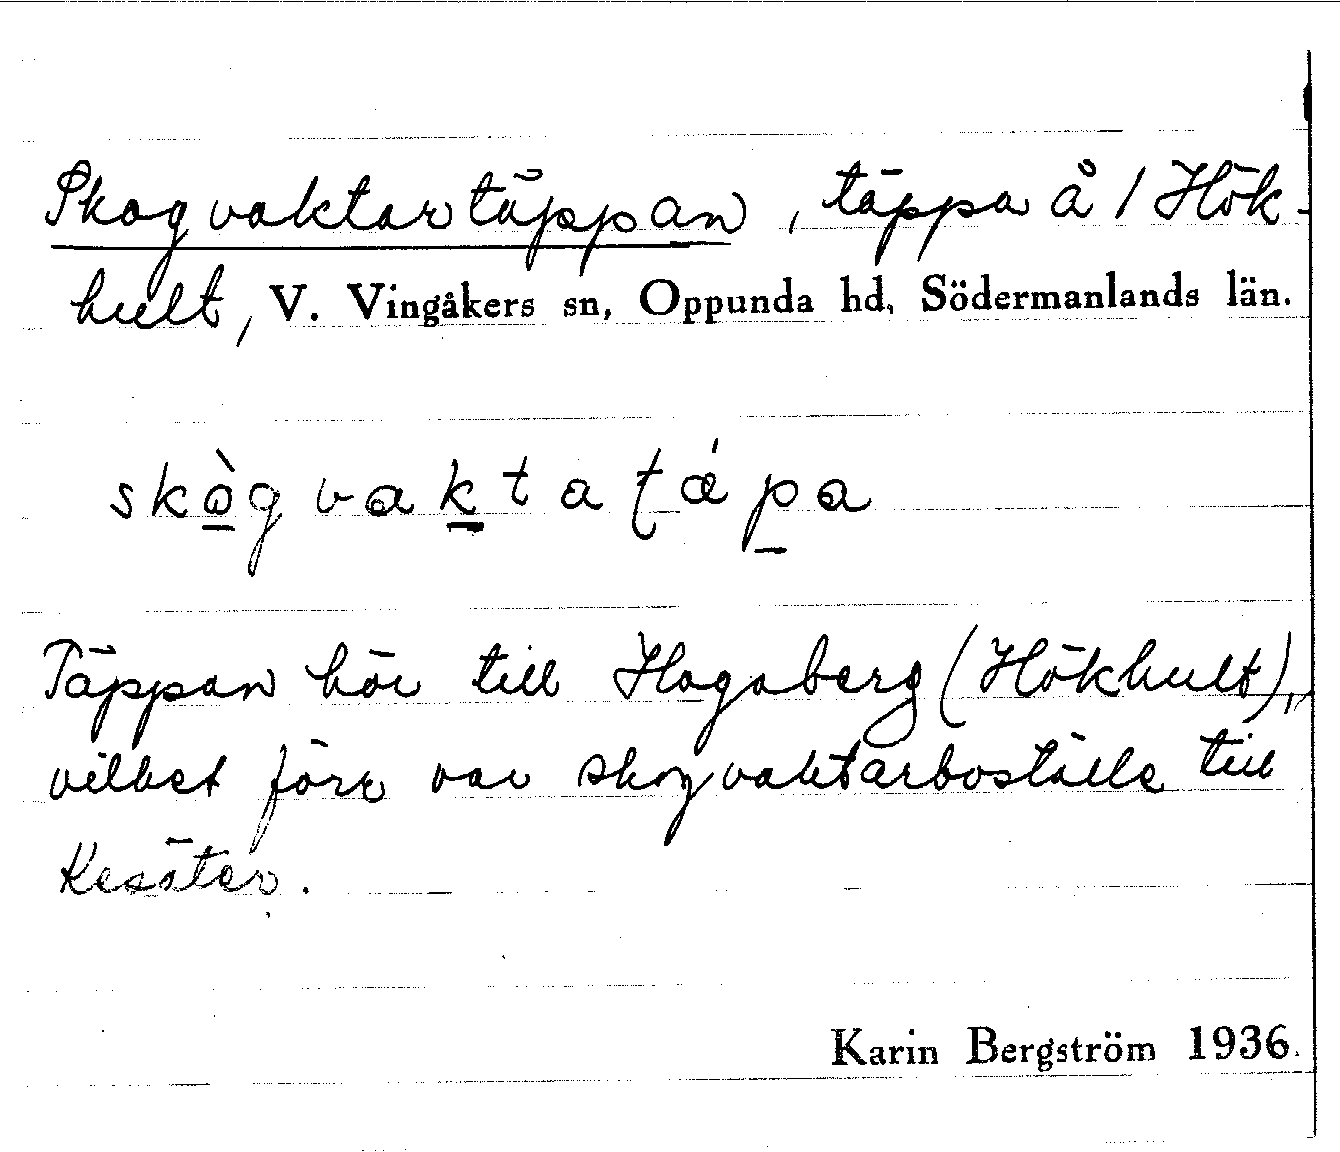 Skogvaktartäppan, täppa å 1 Hök-
hult, V. Vingåkers sn, Oppunda hd, Södermanlands län.
skògvaktatǽpa
Täppan hör till Hagaberg (Hökhult),
vilket förr var skogvaktarboställe till
Kesäter.
Karin Bergström 1936.